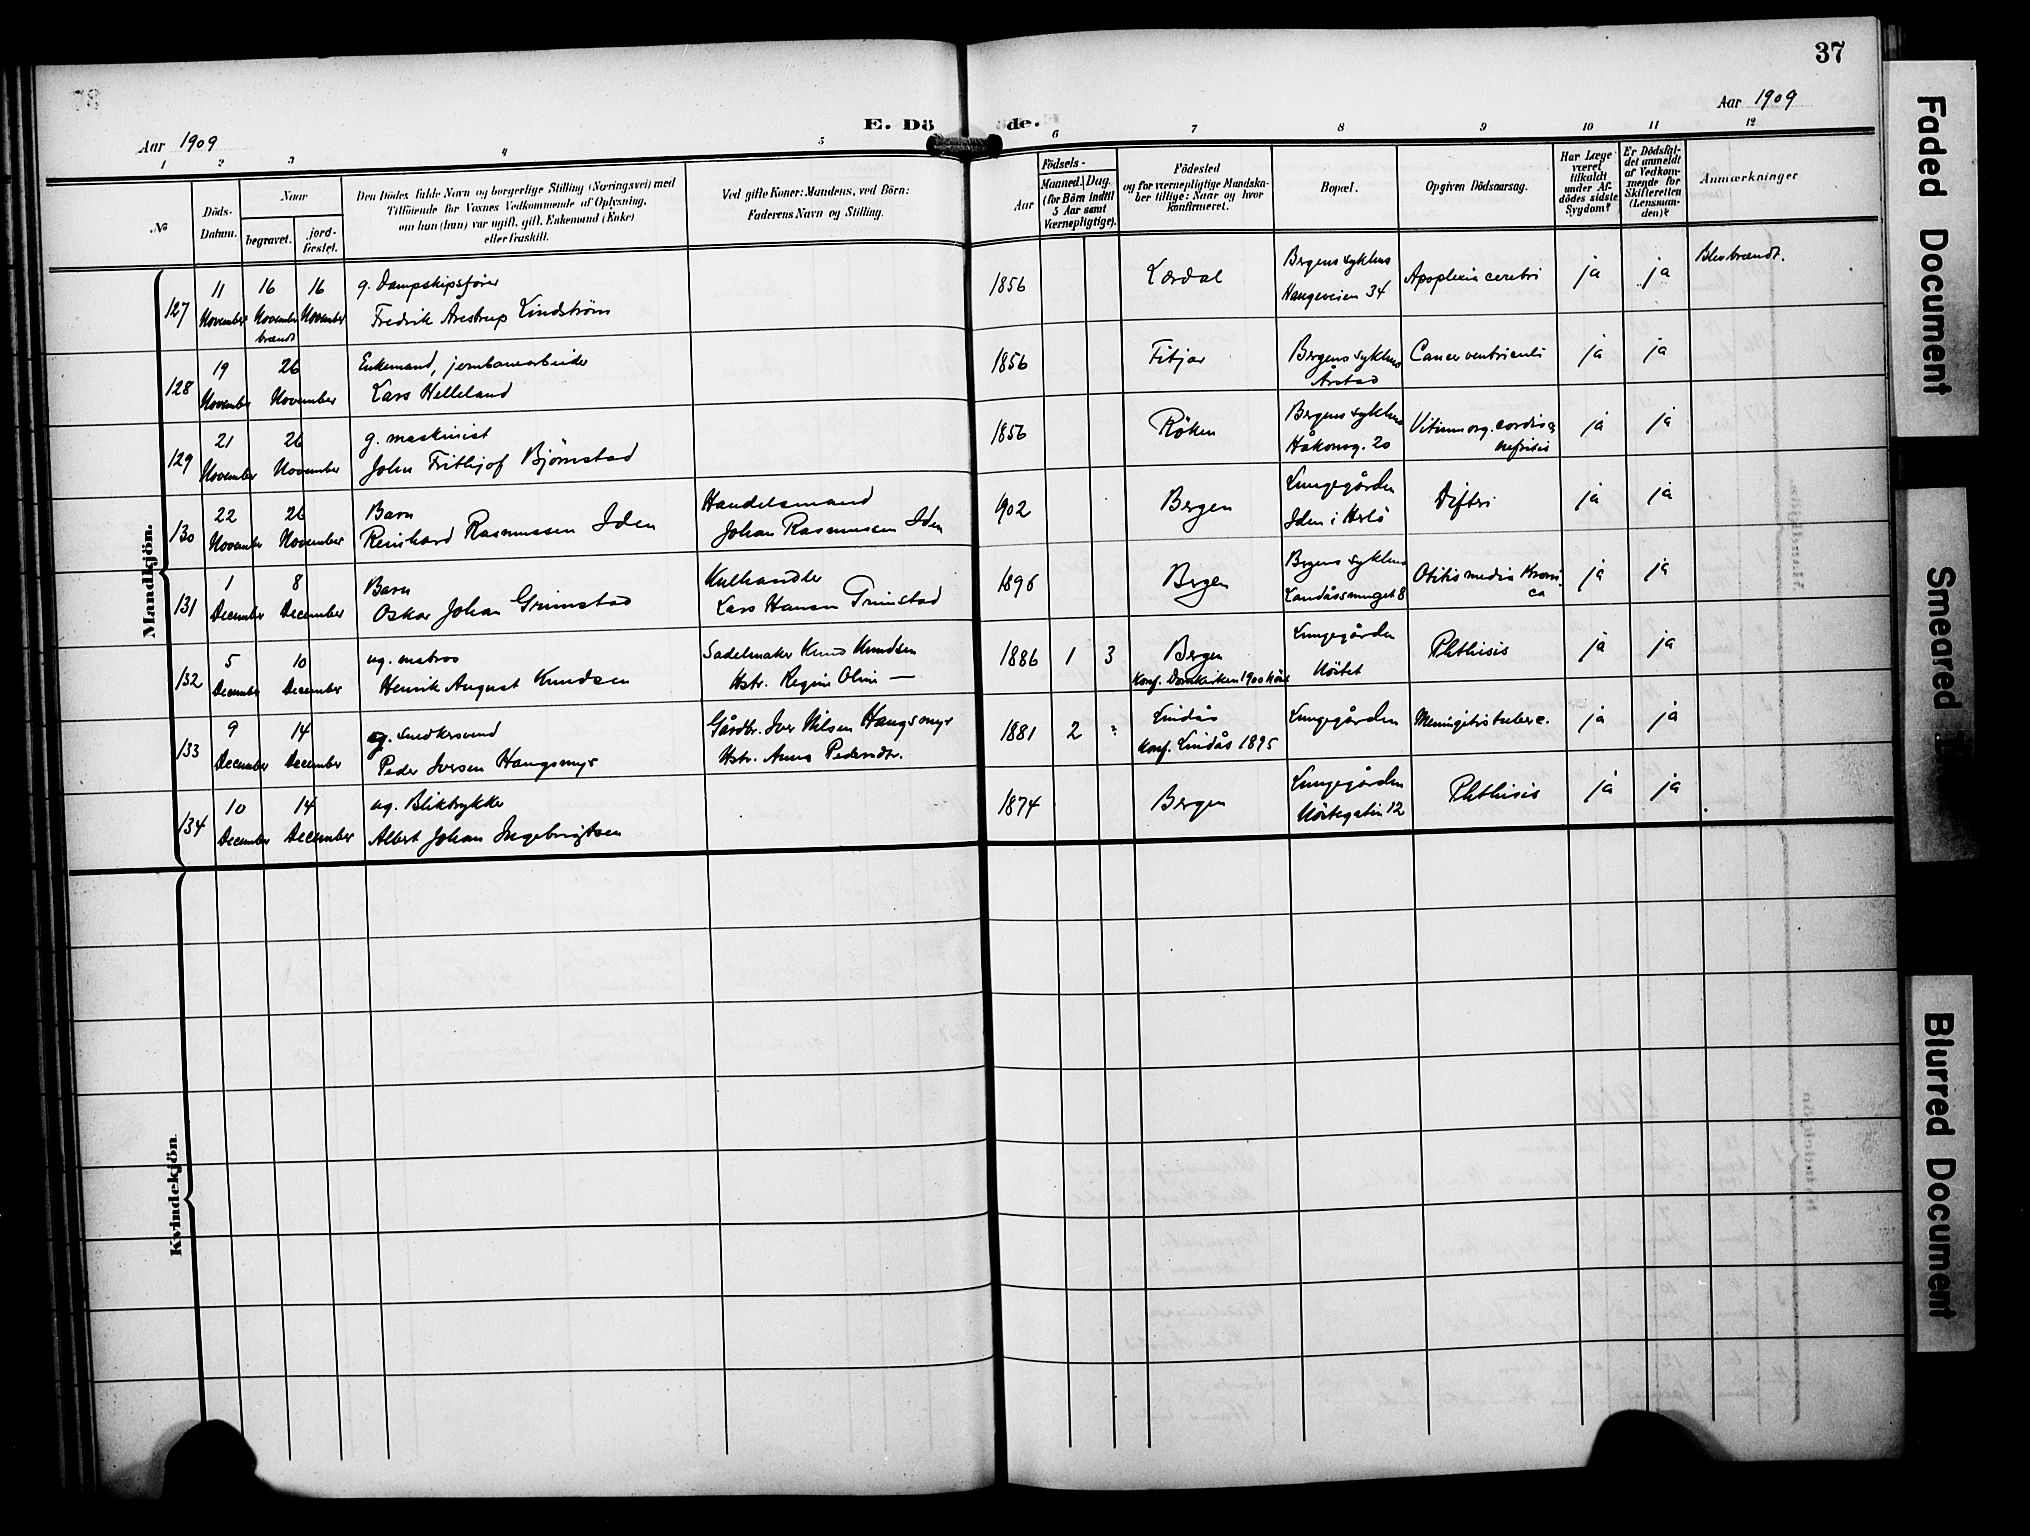 37
Aar 1909
Aar 1909
E. Döde.
1 2 3 4 5 6 7 8 9 10 11 12
No
Döds-Datum.
Naar
begravet.
jordfæstet.
Den Dödes fulde Navn og borgerlige Stilling (Næringsvei) med
Tilföiende for Voxnes Vedkommende af Oplysning,
om han (hun) var ugift, gift, Enkemand (Enke)
eller fraskilt.
Ved gifte Koner: Mandens, ved Börn:
Faderens Navn og Stilling.
Födsels-
Aar
Maaned. Dag.
(for Börn indtil
5 Aar samt
Værnepligtige).
Födested
og for værnepligtige Mandska-
ber tillige: Naar og hvor
konfirmeret.
Bopæl.
Opgiven Dödsaarsag.
Har Læge
været
tilkaldt
under Af-
dödes sidste
Sygdom?
Er Dödsfal-
det anmeldt
af Vedkom-
mende for
Skifteretten
(Lensman-
den)?
Anmærkninger
Mandkjön.
127
11 November
16 November brændt
16 November
g. Dampskipsfører
Fredrik Arestrup Lindstrøm
1856
Lærdal
Bergens sykhus
Haugeveien 34
Apoplexia cerebri
ja
ja
Blev brændt.
128
19 November
26 November
Enkemand, jernbanearbeider
Lars Helleland
1856
Fitjar
Bergens sykhus
Årstad
Cancer ventriculi
ja
ja
129
21 November
26 November
g. maskinist
John Frithjof Bjørnstad
1856
Røken
Bergens sykhus
Håkonsg. 20
Vitium org. cordis &
nefritis
ja
ja
130
22 November
26 November
Barn
Reinhard Rasmussen Iden
Handelsmand
Johan Rasmussen Iden
1902
Bergen
Lungegården
Iden i Herlö
Difteri
ja
ja
131
1 December
8 December
Barn
Oskar Johan Grimstad
Kulhandler
Lars Hansen Grimstad
1896
Bergen
Bergens sykhus
Landåssmuget 8
Otitis media kroni-
ca
ja
ja
132
5 December
10 December
ug. matros
Henrik August Knudsen
Sadelmaker Knud Knudsen
Hstr. Regine Oline —
1886 1 3
Bergen
Konf. Domkirken 1900 höst
Lungegården
Nöstet
Phthisis
ja
ja
133
9 December
14 December
ug. snedkersvend
Peder Iversen Haugsmyr
Gårdbr. Iver Nilsen Haugsmyr
Hstr. Anna Pedersdtr.
1881 2 ?
Lindås
Konf. Lindås 1895
Lungegården
Meningitis tuberc.
ja
ja
134
10 December
14 December
ug. Bliktrykker
Albert Johan Ingebrigtsen
1874
Bergen
Lungegården
Nöstegaten 12
Phthisis
ja
ja
Kvindekjön.
Faded Document
Smeared
Blurred Document